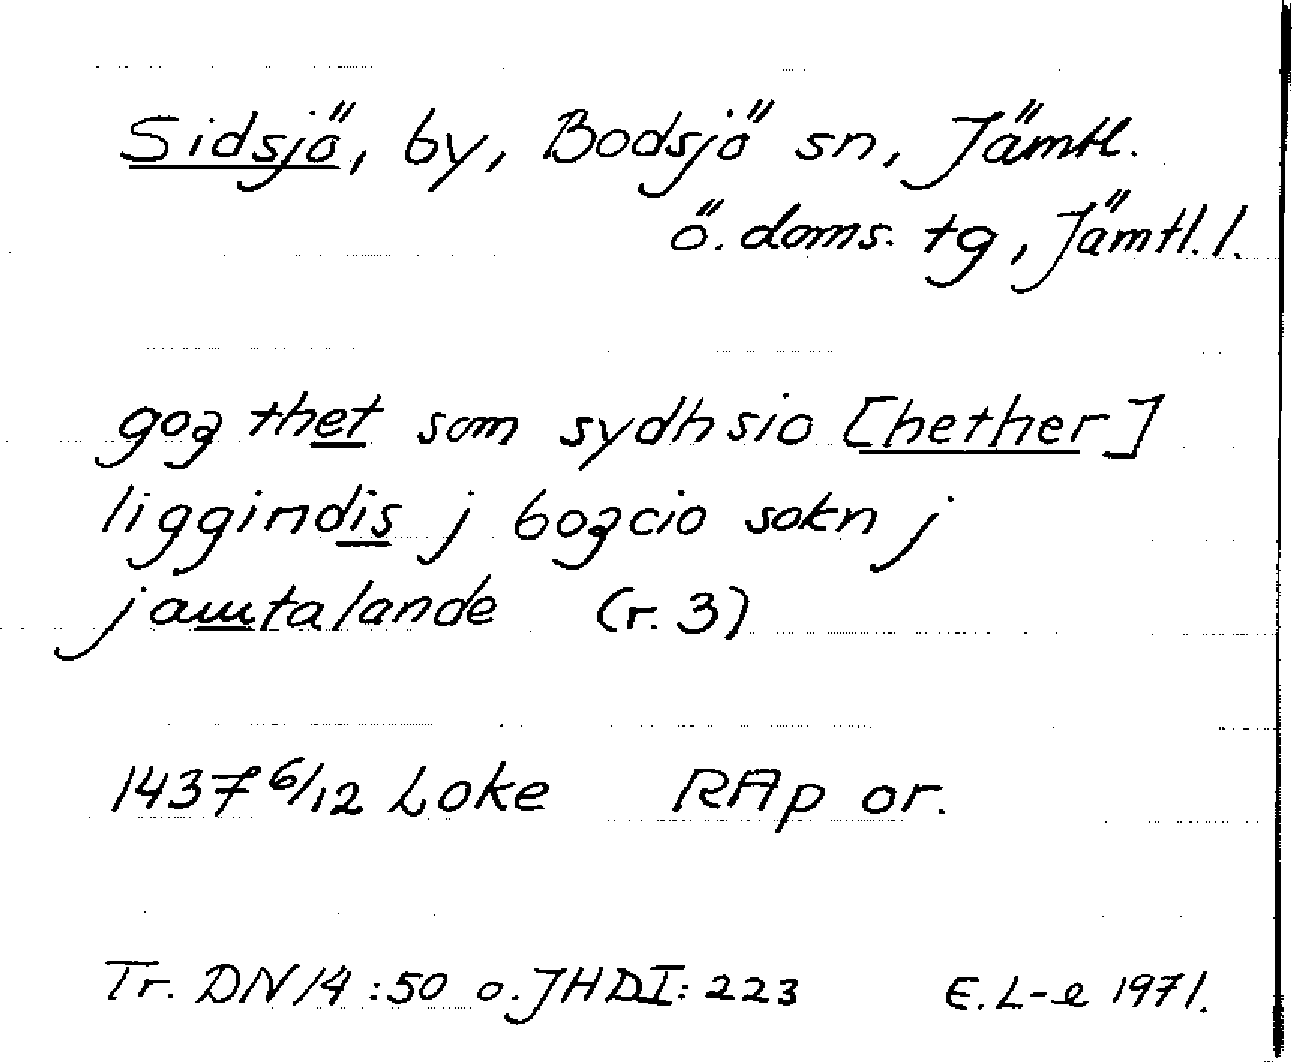 Sidsjö, by, Bodsjö sn, Jämtl.
ö. doms. tg, Jämtl. l.
goʒ thet som sydhsio [hether]
liggindis j boʒcio sokn j
jamtalande (r. 3)
1437 6/12 Loke RAp or.
Tr. DN 14:50 o. JHD I: 223 E. L-e 1971.